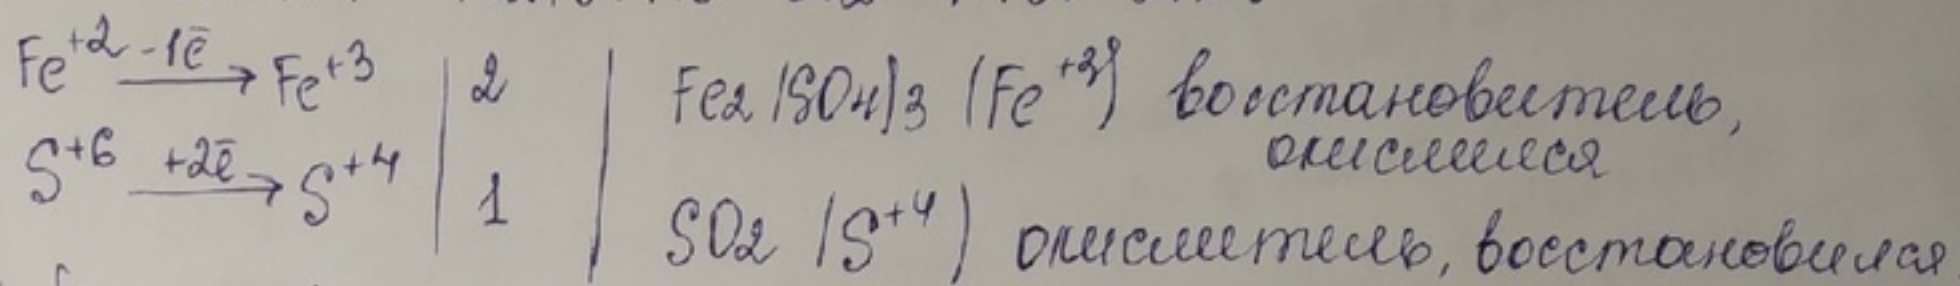 Fe+2 -1ē → Fe+3 | 2 | Fe2(SO4)3 (Fe+3) восстановитель,
окислился
S+6 +2ē → S+4 | 1 | SO2 (S+4) окислитель, восстановился